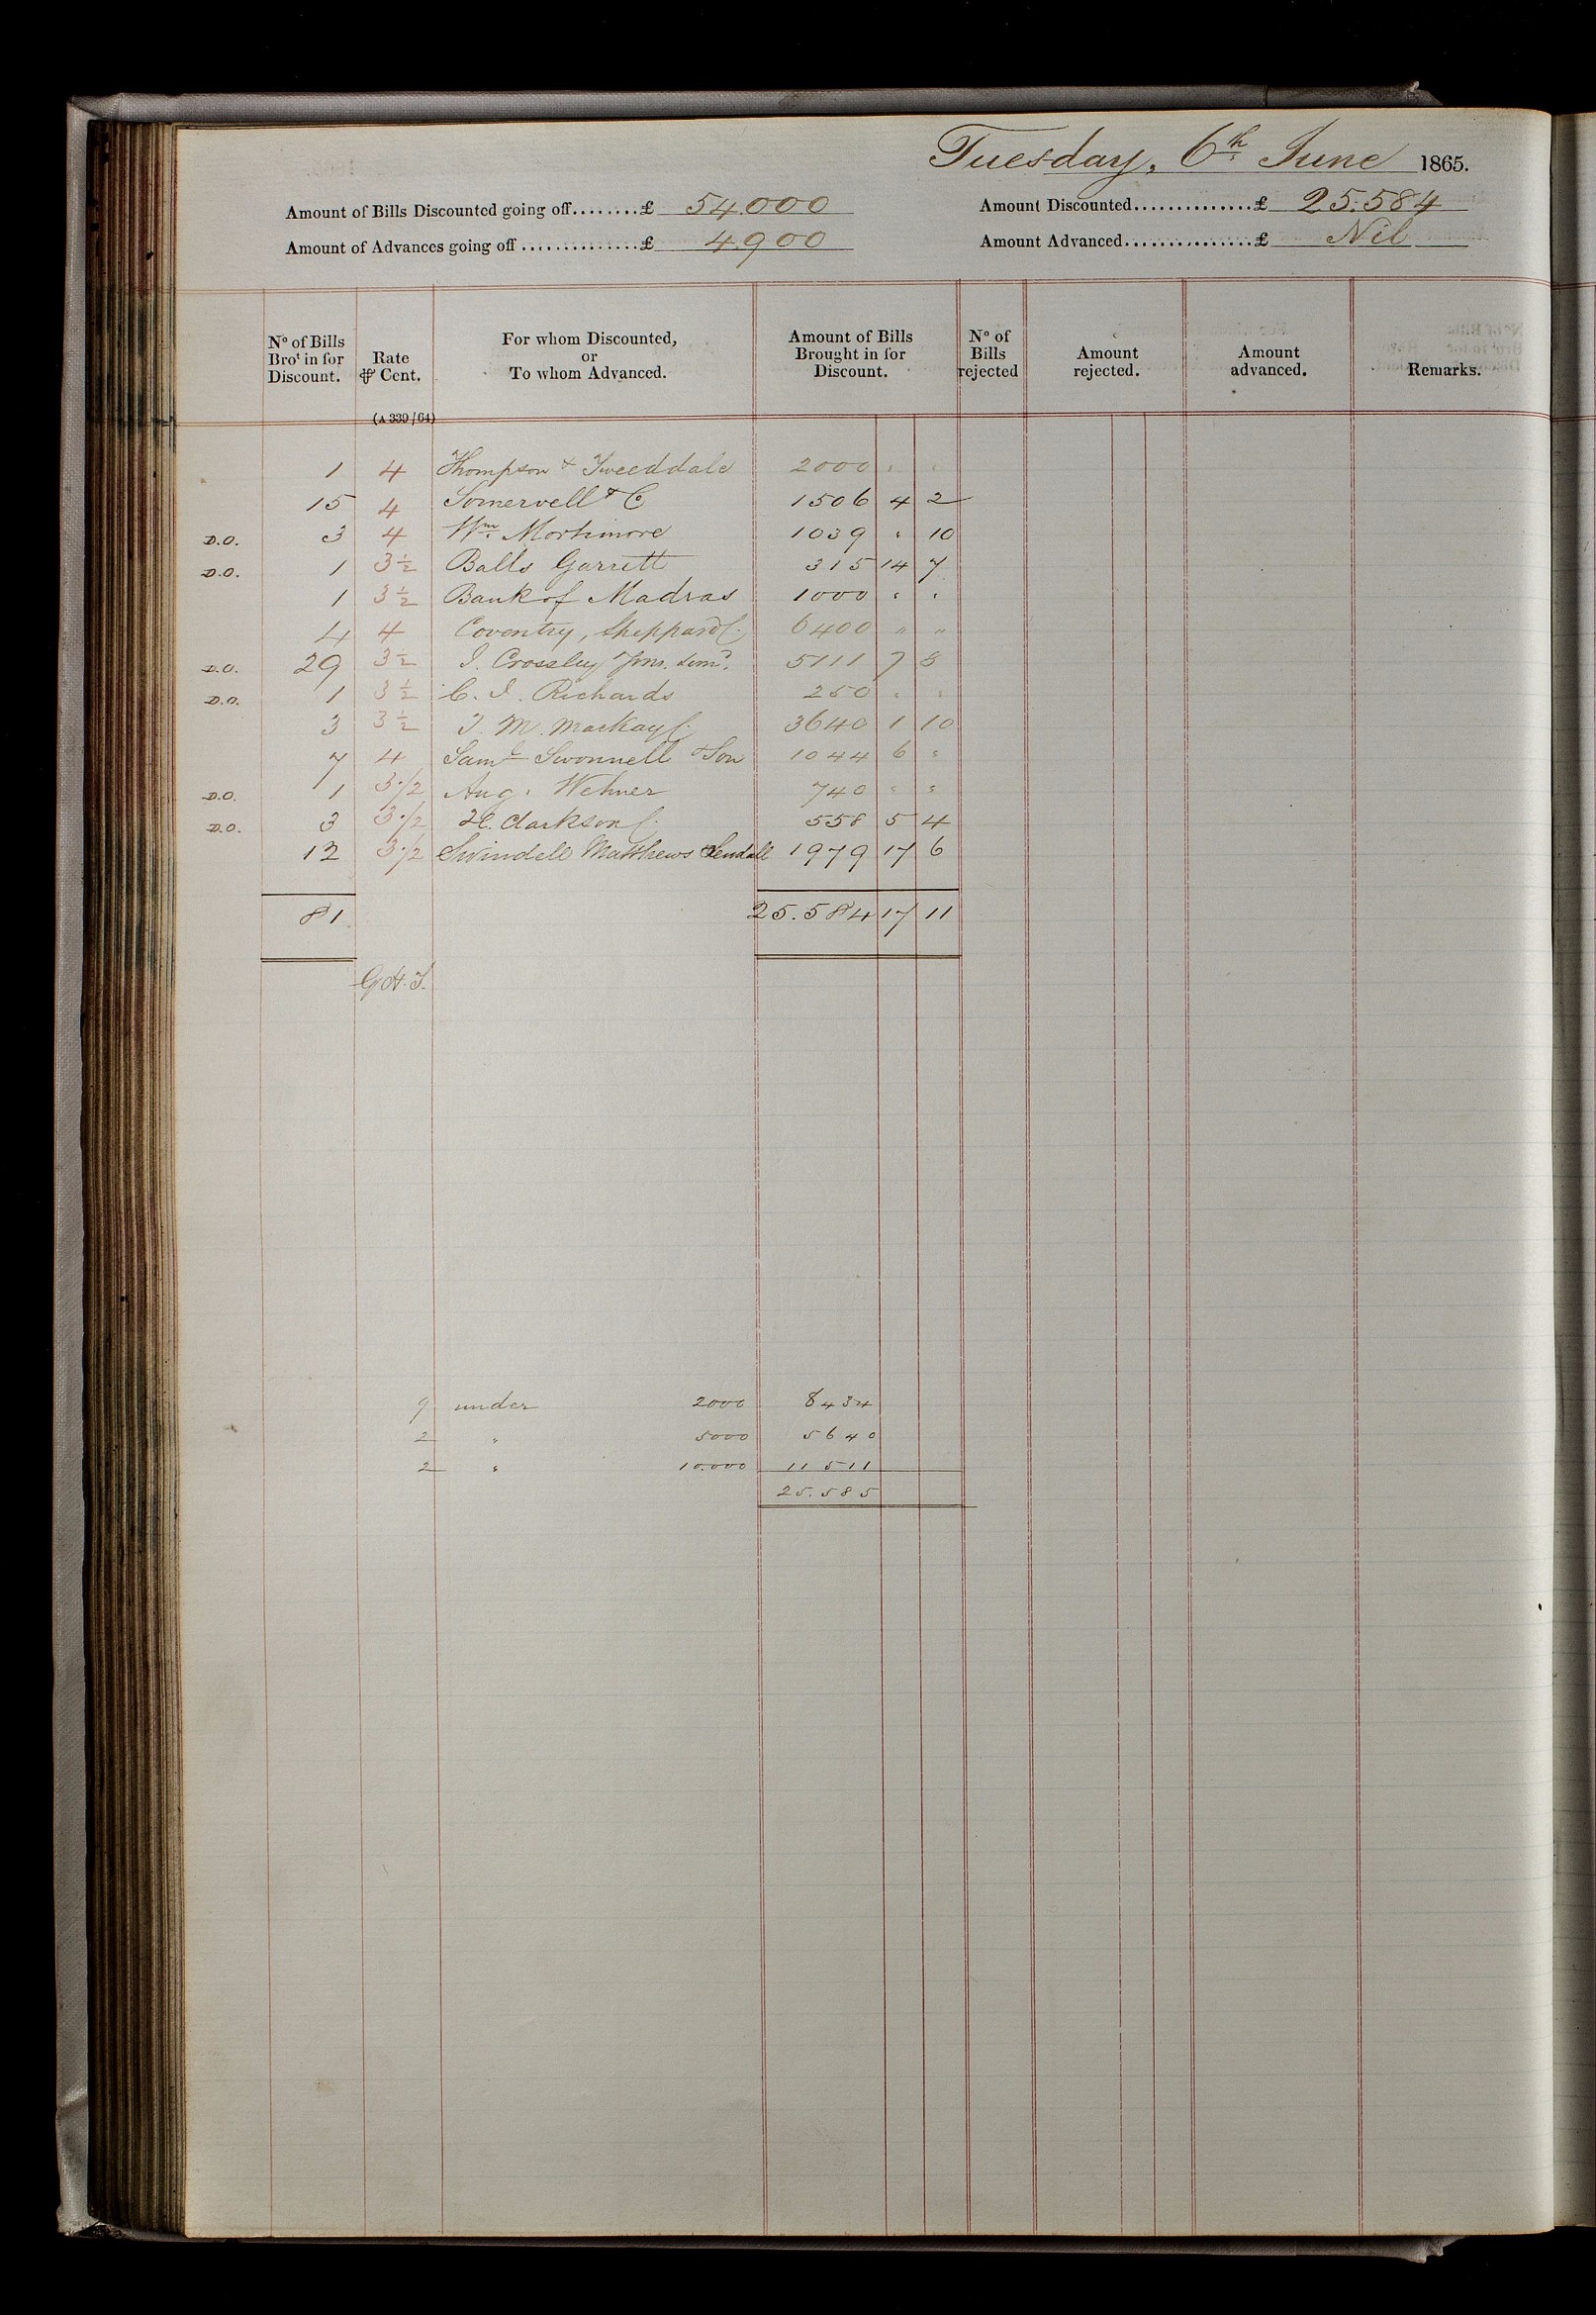 Tuesday, 6th June 1865.
Amount of Bills Discounted going off........£ 54.000 Amount Discounted..............£ 25.584
Amount of Advances going off ..............£ 4900 Amount Advanced...............£ Nil
No of Bills Brot in for Discount. Rate ⅌ Cent. For whom Discounted, or To whom Advanced. Amount of Bills Brought in for Discount. No of Bills rejected Amount rejected. Amount advanced. Remarks.
(A 339/64)
1 4 Thompson & Tweeddale 2000 " "
15 4 Somervell & C 1506 4 2
D.O. 3 4 Wm. Mortimore 1039 " 10
D.O. 1 3½ Balls Garrett 315 14 7
1 3½ Bank of Madras 1000 " "
4 4 Coventry, Sheppard C. 6400 " "
D.O. 29 3½ J. Crossley Sons. Limd. 5111 7 8
D.O. 1 3½ C. J. Richards 250 " "
3 3½ T. M. Mackay C. 3640 1 10
7 4 Saml Swonnell & Son 1044 6 "
D.O. 1 3·/2 Aug. Wehner 740 " "
D.O. 3 3·/2 H. Clarkson C. 558 5 4
12 3·/2 Swindell Matthews & Lendall 1979 17 6
81 25.584 17 11
G.H.T.
9 under 2000 8434
2 " 5000 5640
2 " 10.000 11511
25.585